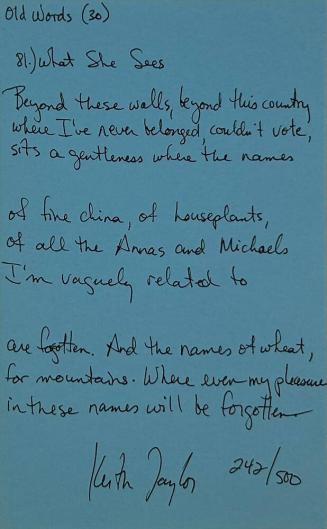 Old Words (30)
81.) What She Sees
Beyond these walls, beyond this country
where I've never belonged, couldn't vote,
sits a gentleness where the names
of fine china, of houseplants,
of all the Annas and Michaels
I'm vaguely related to
are forgotten. And the names of wheat,
for mountains. Where even my pleasure
in these names will be forgotten
Keith Taylor 242/500